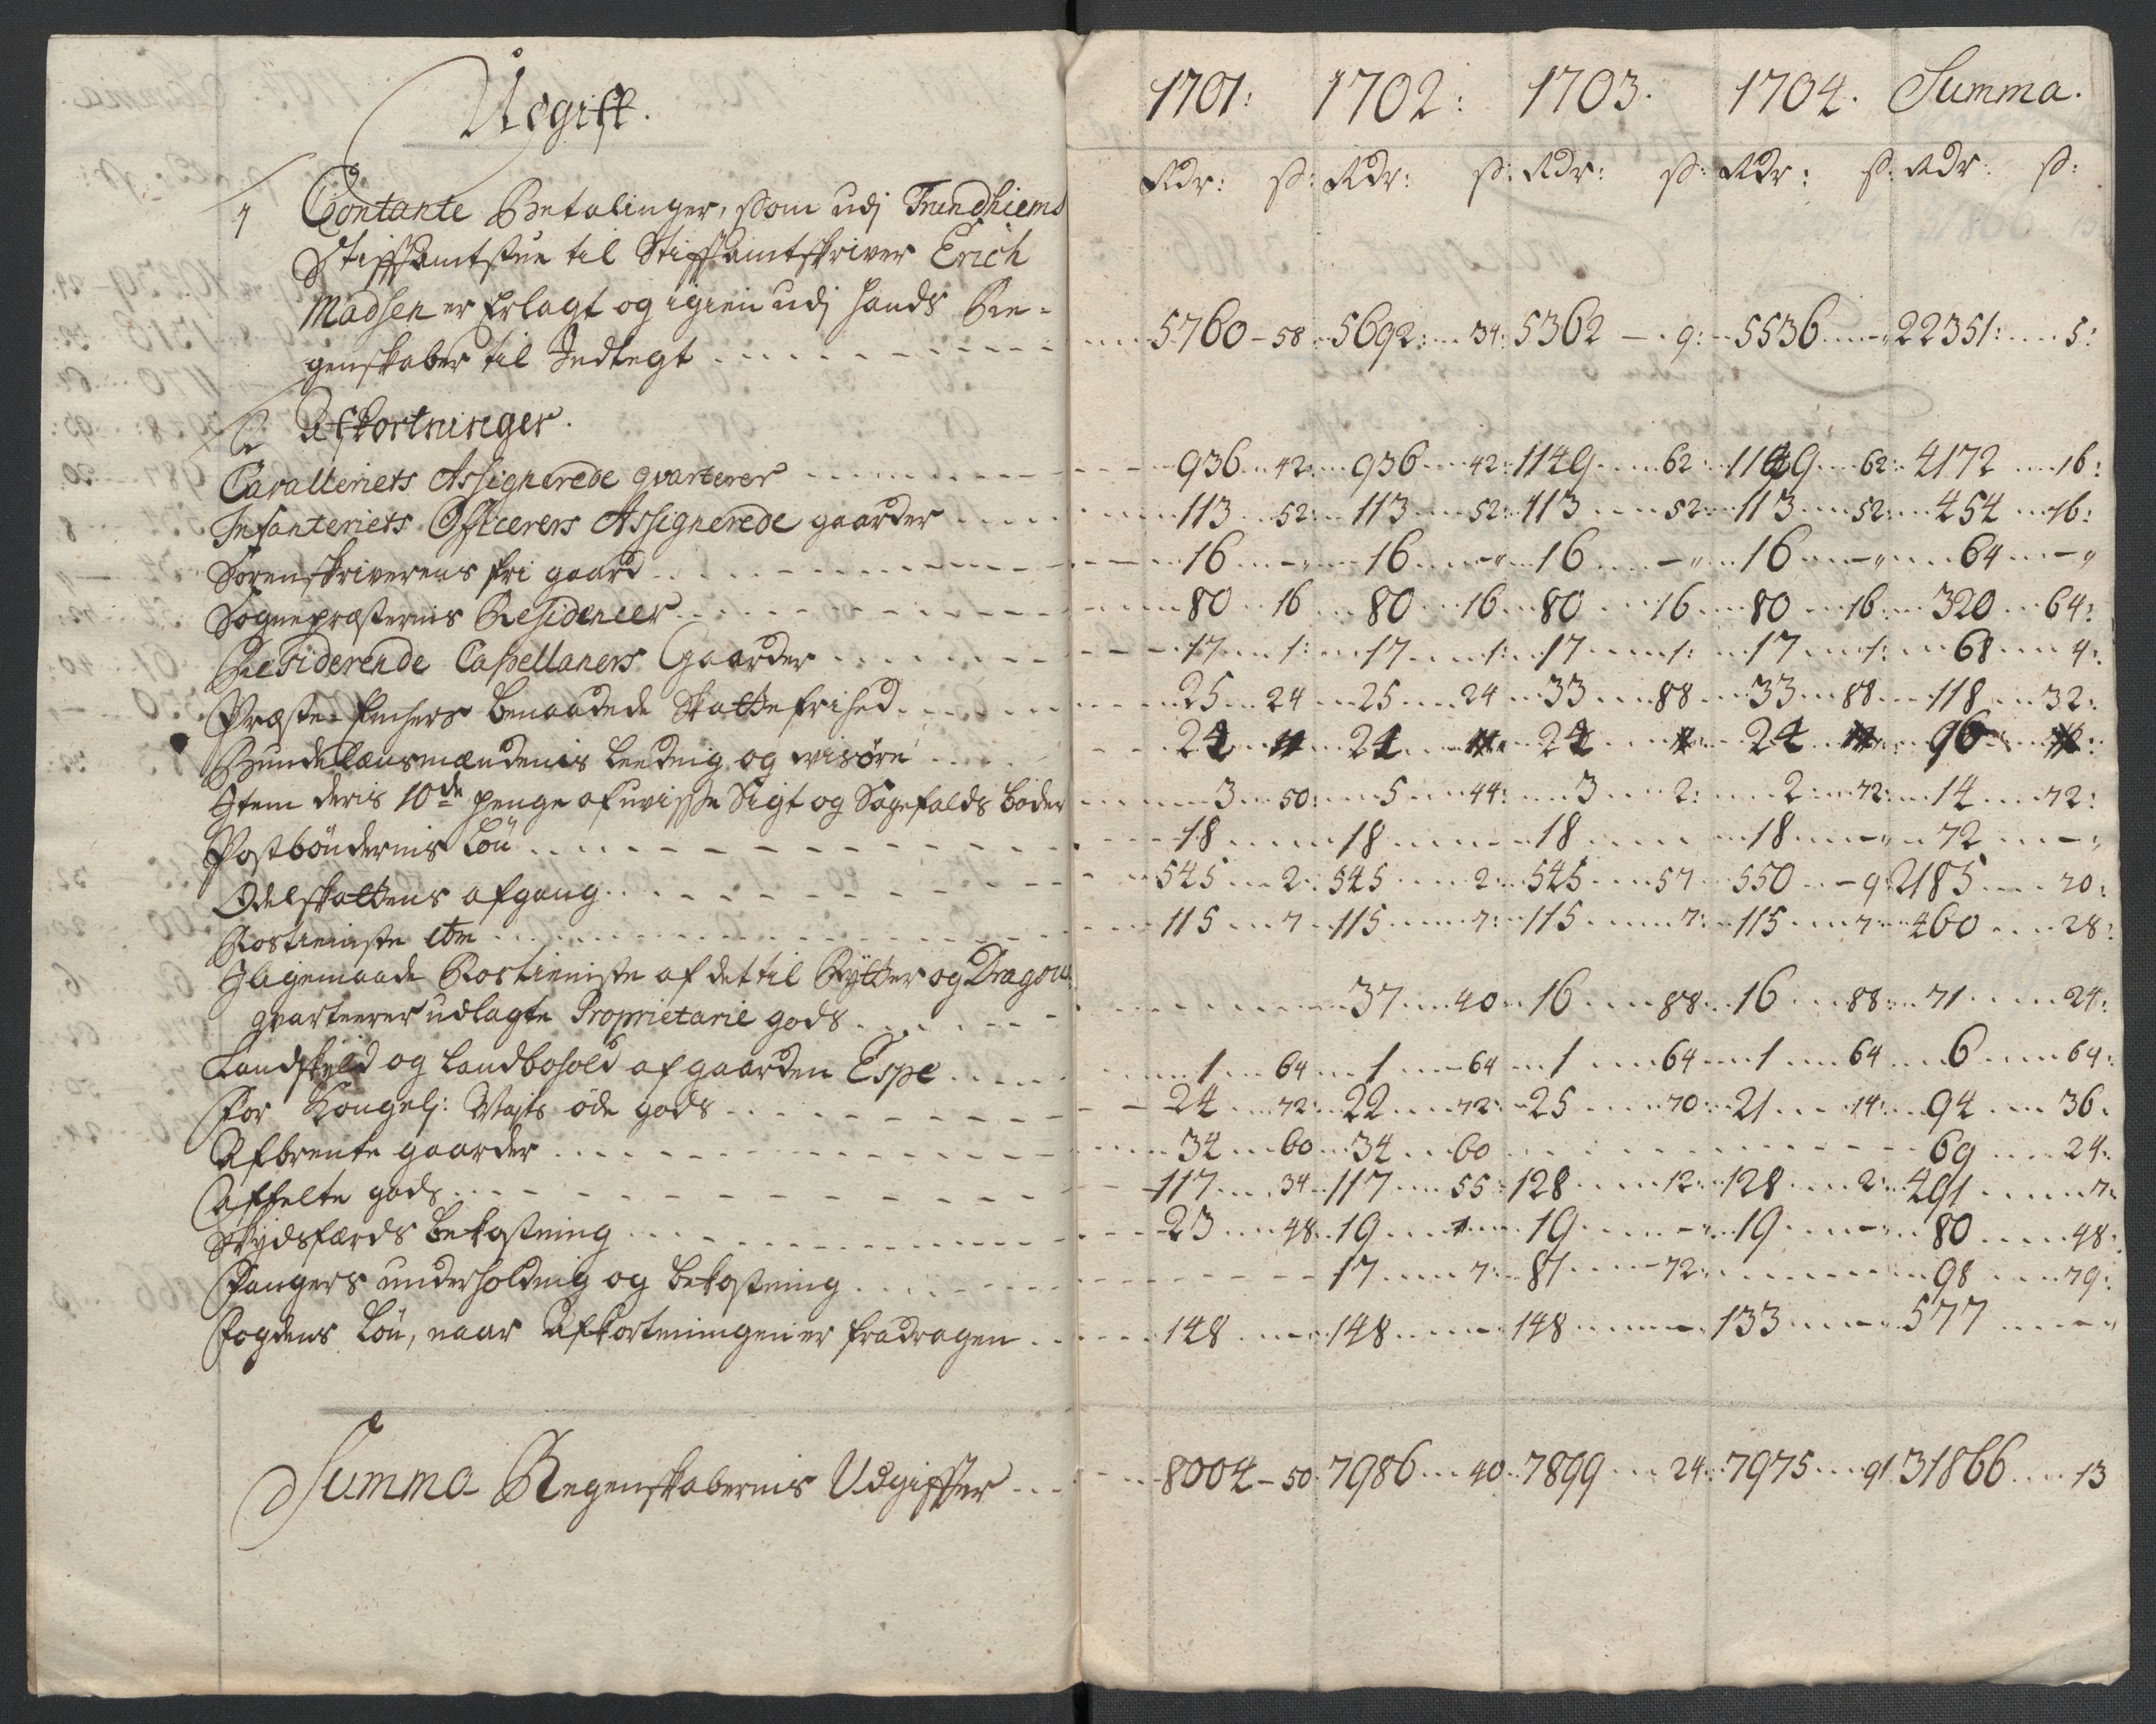 Udgifft.
1701: 1702: 1703. 1704. Summa.
Rdr: ß: Rdr: ß: Rdr: ß: Rdr: ß: Rdr: ß:
1 Contante Betalinger, som udj Trundhiems
Stifftamtstue til Stifftamtskriver Erich
Madsen er Erlagt og igien udj hands Re-
genskaber til Indtegt 5760 - 58 5692: 34: 5362 - 9: 5536 - " 22351: 5:
2 Afkortninger.
Cavalleriets Assignerede qvarterer 936 42: 936 42: 1149 62: 1149 62: 4172 16:
Infanteriets Officerers Assignerede gaarder 113 52: 113 52: 113 52: 113 52: 454 16:
Sorenskriverens fri gaard 16 - " 16 - " 16 - " 16 - " 64 - "
Sognepræsternis Residencer 80 16 80 16 80 16 80 16: 320 64:
Residerende Capellaners Gaarder 17 1: 17 1: 17 1: 17 1: 68 4:
Præste-Enchers benaadede Skattefrihed 25 24 25 24 33 88 33 88 118 32:
Bundelænsmændenis Leednig og wisøre 24 24 24 24 96
Item deris 10de penge af uvisse Sigt og Sagefalds bøder 3 50: 5 44: 3 2: 2: 72: 14 72:
Postbøndernis Løn 18 18 18 18 - " 72 - "
Odelskattens afgang 545 2: 545 2: 545 57 550 - 9: 2185 70:
Rostieniste etm 115 7 115 7: 115 7: 115 7 460 28:
Jligemaade Rostieniste af det til Rytter og Dragou
qvarteerer udlagte Proprietarie gods 37 40 16 88 16 88: 71 24:
Landskyld og Landbohold af gaarden Espe 1 64 1 64 1 64 1 64 6 64:
For Kongelj: Mayts øde gods 24 72: 22 72: 25 70: 21 14: 94 36.
Afbrente gaarder 34 60 34 60 69 24:
Affelte gods 117 34 117 55: 128 12: 128 2: 491 7:
Skydsfærds bekostning 23 48: 19 19 - " 19 - " 80 48:
Fangers underholdnig og bekostning 17 7: 81 72: 98 79:
Fogdens Løn, naar Afkortningen er fradragen 148 148 148 133 - " 577 - "
Summa Regenskabernis Udgiffter 8004 - 50: 7986 40 7899 24: 7975 91 31866 13